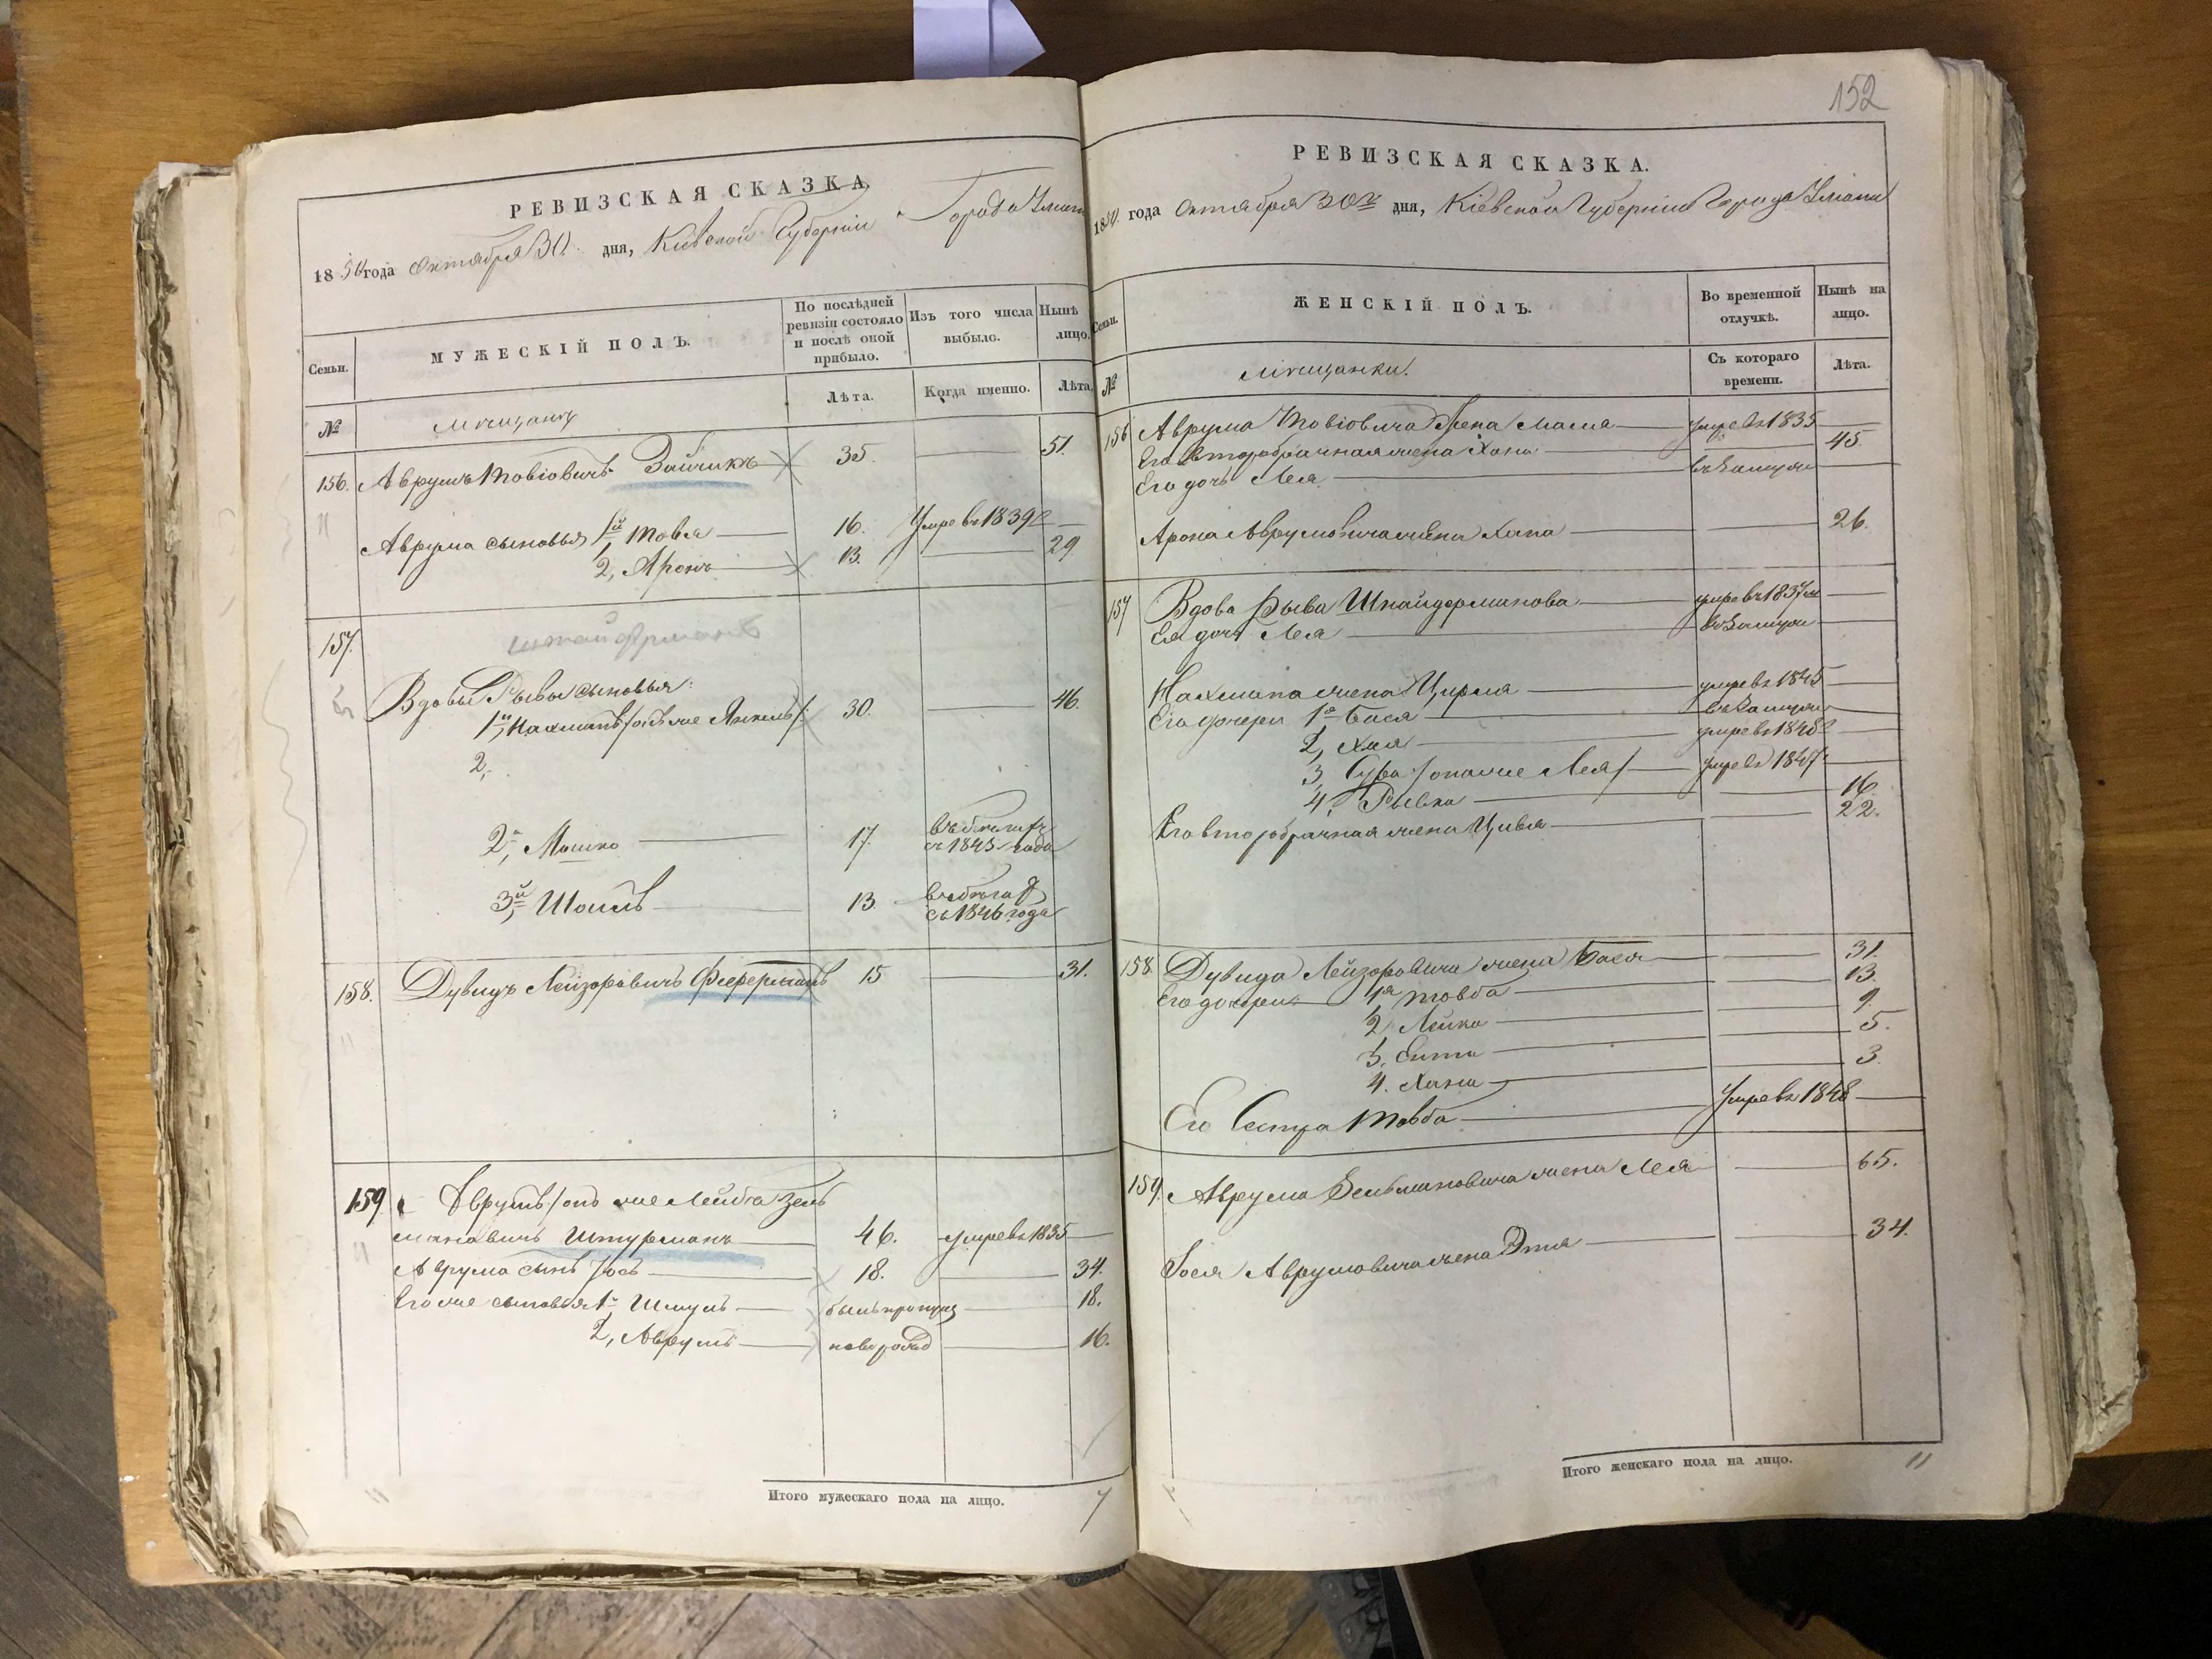 РЕВИЗСКАЯ СКАЗКА
1850 года Октября 30. дня, Кіевской Губерніи Города Умани
Семьи.
МУЖЕСКІЙ ПОЛЪ.
По послѣдней ревизіи состояло и послѣ оной прибыло.
Изъ того числа выбыло.
Нынѣ лицо.
Лѣта.
Когда именно.
Лѣта.
№
мѣщанъ
156. Аврумъ Товіовичъ Зайчикъ 35. 51.
Аврума сыновья 1й Товья 16. Умре въ 1839
2, Аронъ 13. 29
157.
Вдовы Рывы сыновья:
1й, Нахманъ /онъ же Янкель/: 30. 46.
2,
2й, Мошко 17. въ бѣгахъ
съ 1845 года
3й, Шоилъ 13. въ бѣгах
съ 1846 года
158. Дувидъ Лейзоровичъ Феферманъ 15 31.
159. Аврумъ /онъ же Лейба Зель
мановичъ Штурманъ 46. умре въ 1835
Аврума сынъ Іось 18. 34.
Его же сыновья 1й, Шмуль былъ пропущ 18.
2, Аврумъ новорожд 16.
Итого мужескаго пола на лицо. 7
152
РЕВИЗСКАЯ СКАЗКА.
1850 года Октября 30го дня, Кіевской Губерніи Города Умани
Семьи.
ЖЕНСКІЙ ПОЛЪ.
Во временной отлучкѣ.
Нынѣ на лицо.
№
мѣщанки.
Съ котораго времени.
Лѣта.
156 Аврума Товіовича жена Масля умре въ 1835
Его второбрачная жена Хана 45.
Его дочь Лея въ Замуж
Арона Аврумовича жена Хана 26.
157 Вдова Рыва Шнайдерманова умре въ 1837
Ея дочь Лея въ Замуж
Нахмана жена Цирля умре въ 1845
Его дочери 1я Бася въ Замуж
2, Хая умре въ 1848
3, Сура /она же Лея/ умре въ 1847
4, Рывка 16.
Его второбрачная жена Цивья 22.
158. Дувида Лейзоровича жена Бася 31.
Его дочери 1я Товба 13.
2, Лейка 9.
3, Ента 5.
4. Хана 3.
Его Сестра Товба Умре въ 1848
159. Аврума Зельмановича жена Лея 65.
Іося Аврумовича жена Этля 34.
Итого женскаго пола на лицо. 11